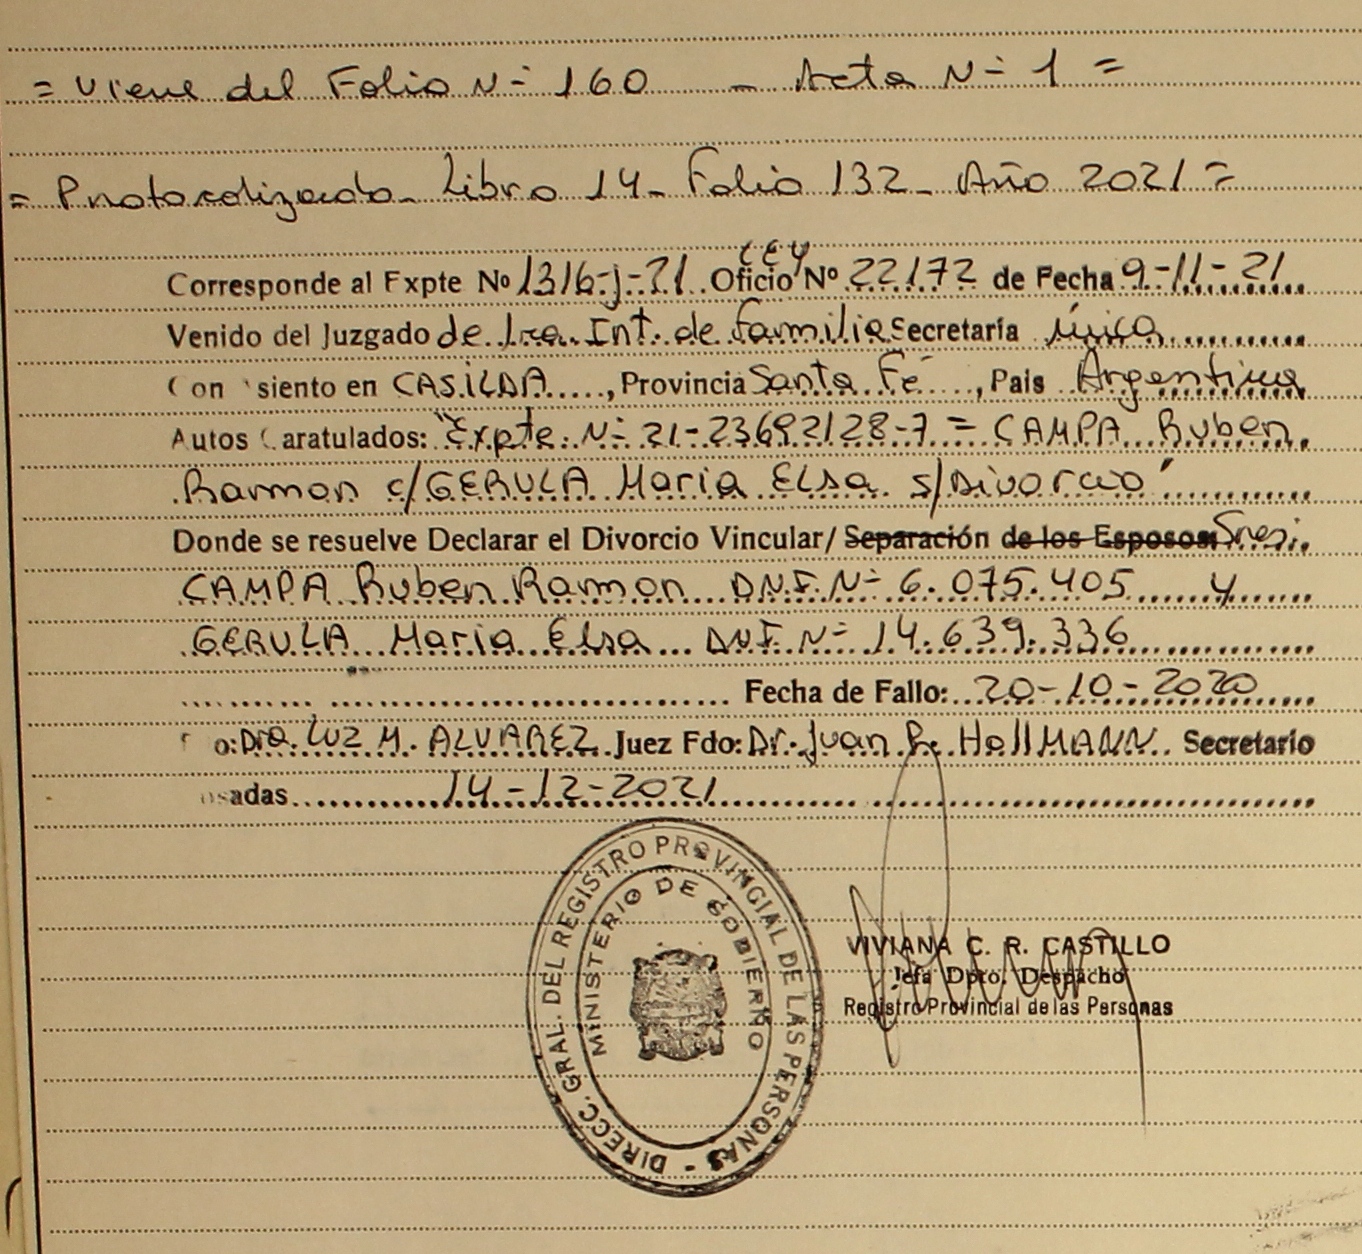 = Viene del Folio N= 160 - Acta N= 1 =
= Protocolizado - Libro 14 - Folio 132 - Año 2021 =
LEY
Corresponde al Expte No 1316-J-21 Oficio Nº 22172 de Fecha 9-11-21
Venido del Juzgado de 1ra. Int. de Familia Secretaría única
Con siento en CASILDA, Provincia Santa Fé, País Argentina
Autos Caratulados: "Expte. N= 21-23692128-7 = CAMPA Ruben
Ramon c/GERULA Maria Elsa s/Divorcio"
Donde se resuelve Declarar el Divorcio Vincular/ Separación de los Esposos Sres.
CAMPA Ruben Ramon D.N.I. N= 6.075.405 y
GERULA Maria Elsa D.N.I. N= 14.639.336
Fecha de Fallo: 20-10-2020
o: Dra. LUZ M. ALVAREZ Juez Fdo: Dr. Juan R. HollMANN Secretario
sadas 14-12-2021
DIRECC. GRAL. DEL REGISTRO PROVINCIAL DE LAS PERSONAS -
MINISTERIO DE GOBIERNO
VIVIANA C. R. CASTILLO
Jefa Dpto. Despacho
Registro Provincial de las Personas